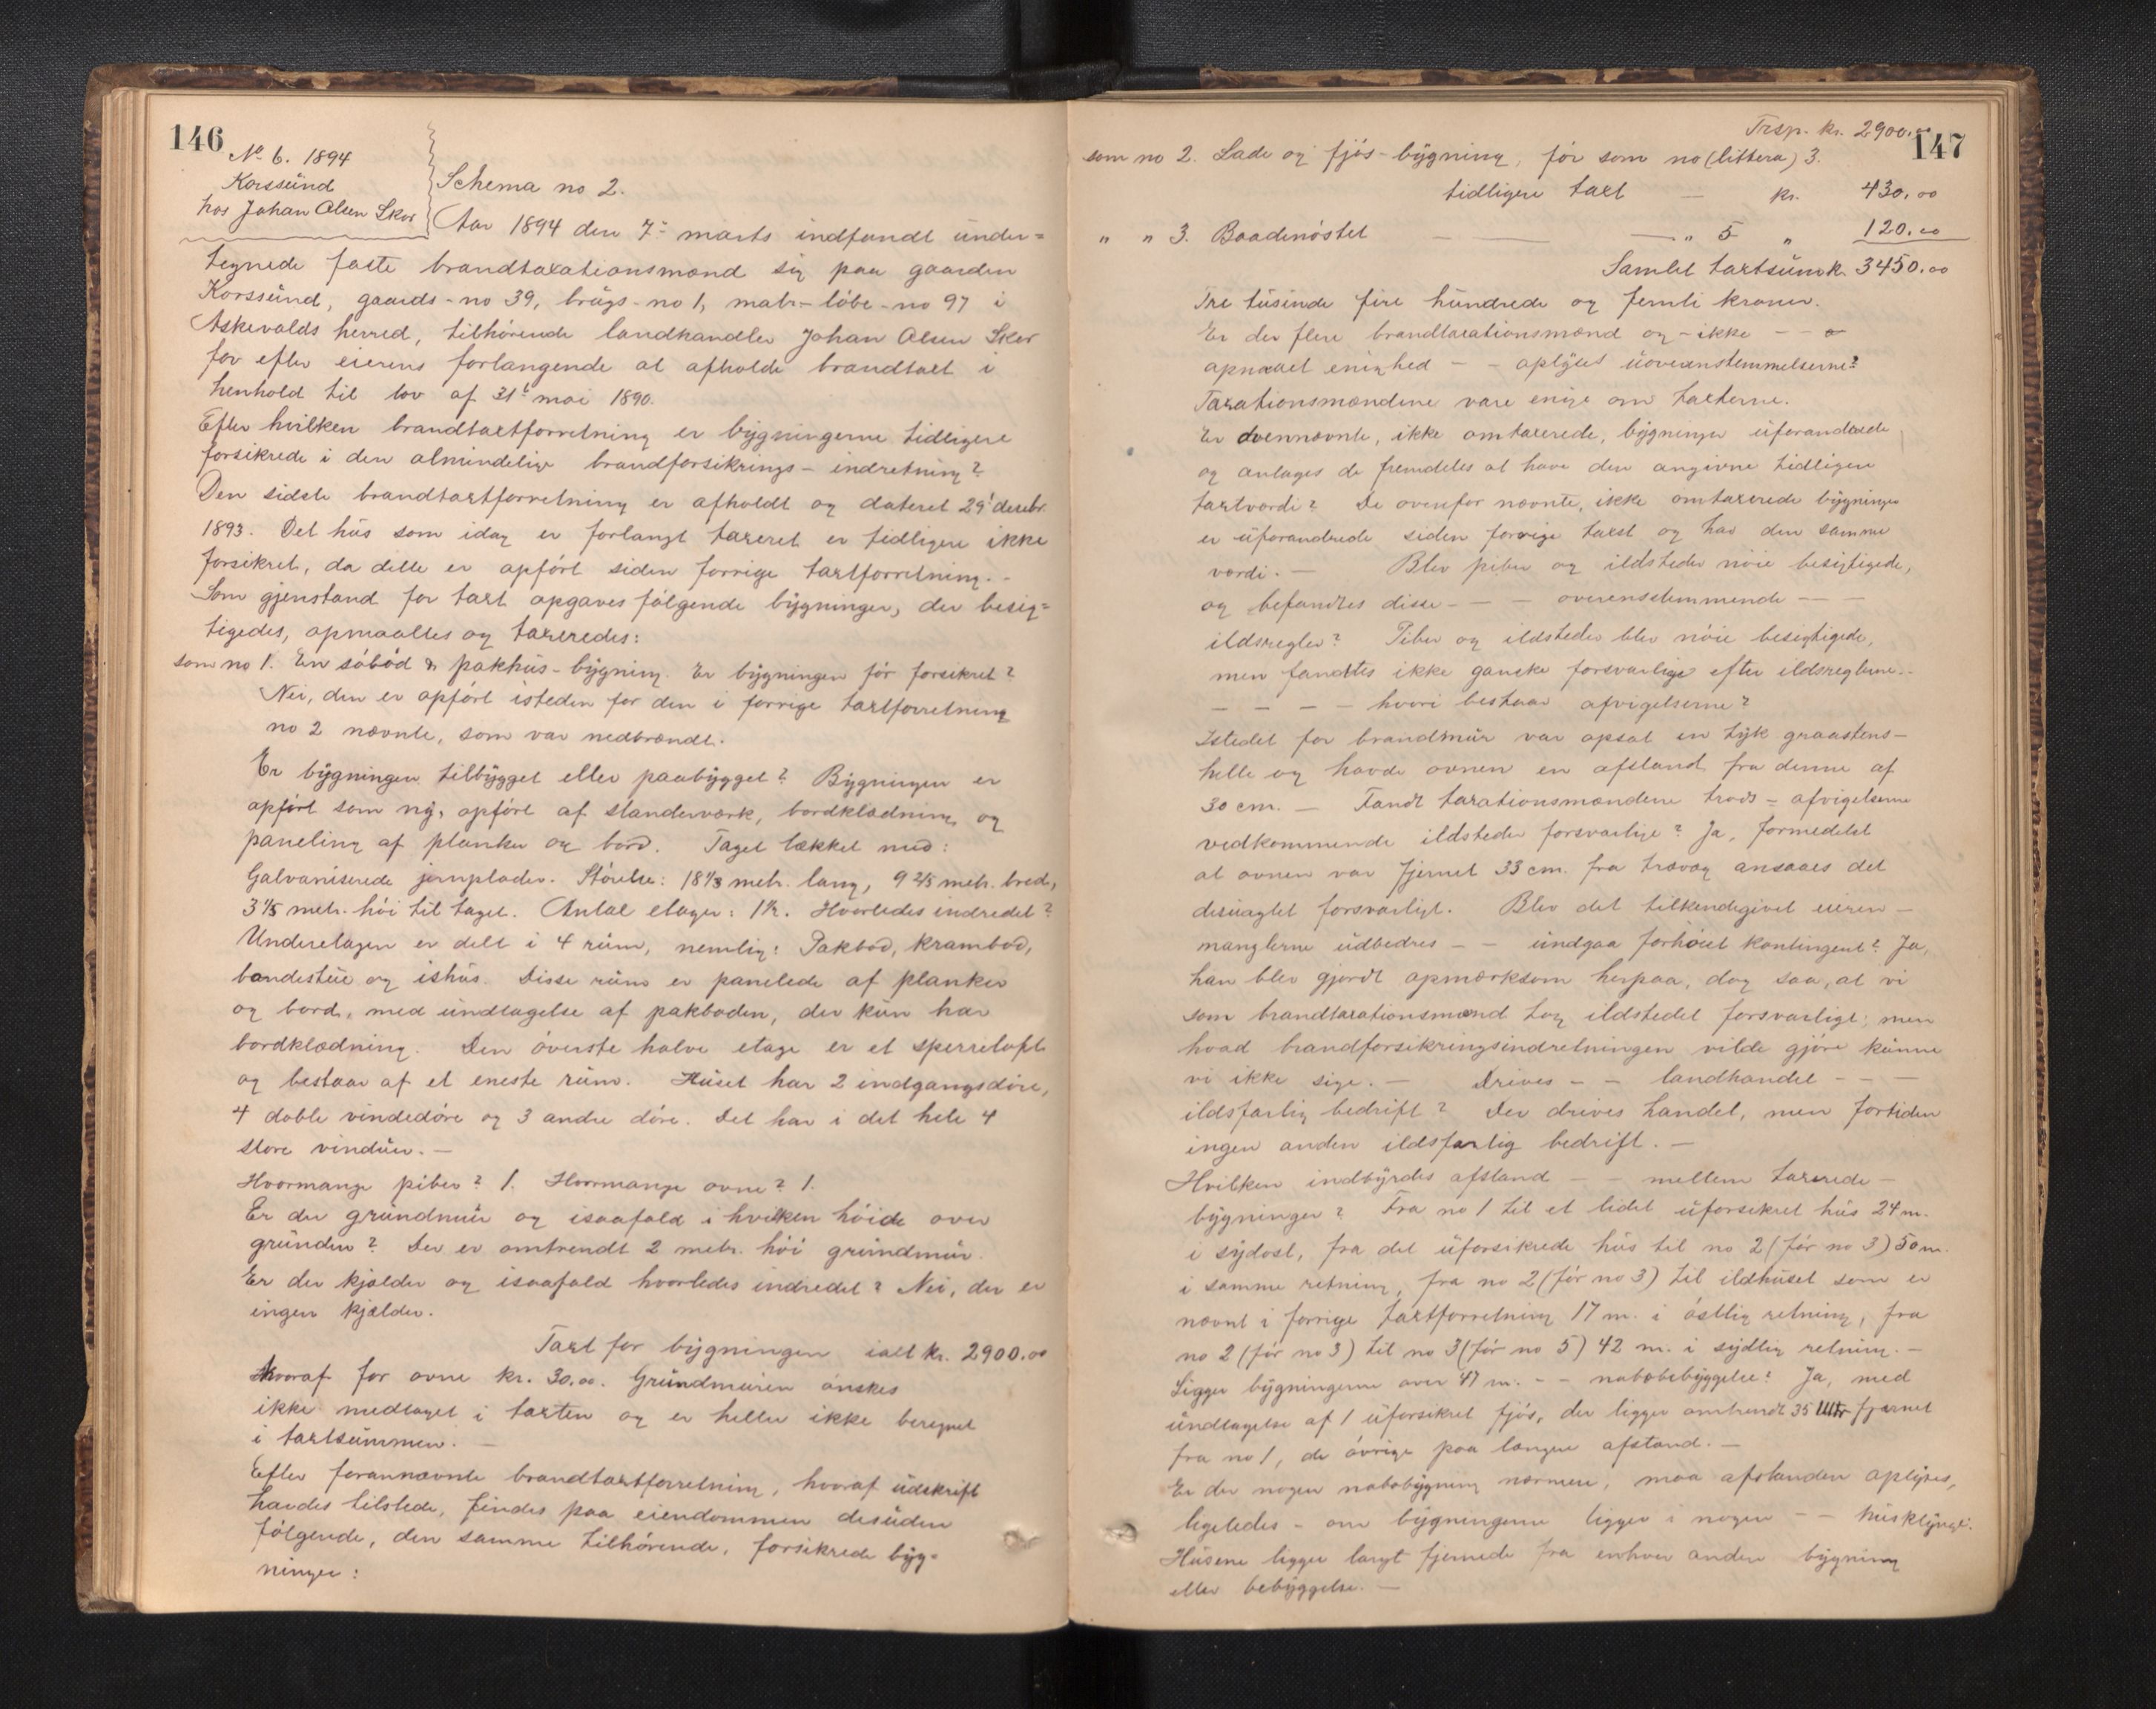 146
No 6. 1894
Korssund
hos Johan Olsen Sker
Schema no 2.
Aar 1894 den 7de marts indfandt under=
tegnede faste brandtaxationsmænd sig paa gaarden
Korssund, gaards-no 39, brugs-no 1, matr-løbe-no 97 i
Askevolds herred, tilhørende landhandler Johan Olsen Sker
for efter eierens forlangende at afholde brandtaxt i
henhold til lov af 31te mai 1890.
Efter hvilken brandtaxtforretning er bygningerne tidligere
forsikrede i den almindelige brandforsikrings-indretning?
Den sidste brandtaxtforretning er afholdt og dateret 29' desebr.
1893. Det hus som idag er forlangt taxeret er tidligere ikke
forsikret, da dette er opført siden forrige taxtforretning.-
Som gjenstand for taxt opgaves følgende bygninger, der besig=
tigedes, opmaaltes og taxeredes:
som no 1. En søbod & pakhus-bygning. Er bygningen før forsikret?
Nei, den er opført isteden for den i forrige taxtforretning
no 2 nævnte, som var nedbrændt.
Er bygningen tilbygget eller paabygget? Bygningen er
opført som ny, opført af standerværk, bordklædning og
paneling af planker og bord. Taget tækket med:
Galvaniserede jernplader. Størelse: 18 1/3 metr. lang, 9 2/5 metr. bred,
3 1/5 metr. høi til taget. Antal etager: 1 1/2. Hvorledes indredet?
Underetagen er delt i 4 rum, nemlig: Pakbod, krambod,
bondestue og ishus. Disse rum er panelede af planker
og bord, med undtagelse af pakboden, der kun har
bordklædning. Den øverste halve etage er et sperreloft
og bestaar af et eneste rum. Huset har 2 indgangsdøre,
4 doble vindedøre og 3 andre døre. Det har i det hele 4
store vinduer. —
Hvormange piber? 1. Hvormange ovne? 1.
Er der grundmur og isaafald i hvilken høide over
grunden? Der er omtrendt 2 metr. høi grundmur.
Er der kjælder og isaafald hvorledes indredet? Nei, der er
ingen kjælder.
Taxt for bygningen ialt kr. 2900.00
hvoraf for ovne kr. 30.00. Grundmuren ønskes
ikke medtaget i taxten og er heller ikke beregnet
i taxtsummen. —
Efter forannævnte brandtaxtforretning, hvoraf udskrift
havdes tilstede, findes paa eiendommen desuden
følgende, den samme tilhørende, forsikrede byg=
ninger:
Trsp. kr. 2900.00
147
som no 2. Lade og fjøs-bygning, før som no (littera) 3.
tidligere taxt — kr. 430.00
" " 3. Baadenøstet — — — " 5 " 120.00
Samlet taxtsum k. 3450.00
Tre tusinde fire hundrede og femti kroner.
Er der flere brandtaxationsmænd og - ikke - -
opnaaet enighed - - oplyses uoverenstemmelserne?
Taxationsmændene vare enige om taxterne.
Er ovennævnte, ikke omtaxerede, bygninger uforandrede
og antages de fremdeles at have den angivne tidligere
taxtværdi? De ovenfor nævnte, ikke omtaxerede bygninger
er uforandrede siden forrige taxst og har den samme
værdi. — Blev piber og ildsteder nøie besigtigede,
og befandtes disse - - - overenstemmende - - -
ildsregler? Piber og ildsteder blev nøie besigtigede,
men fandtes ikke ganske forsvarlige efter ildsreglerne.-
- - - - hvori bestaar afvigelserne?
Istedet for brandmur var opsat en tyk graastens-
helle og havde ovnen en afstand fra denne af
30 cm. — Fandt taxationsmændene trods - afvigelserne
vedkommende ildsteder forsvarlige? Ja, formedelst
at ovnen var fjernet 33 cm. fra trævæg ansaaes det
desuagtet forsvarligt. Blev det tilkendegivet eieren -
manglerne udbedres - - undgaa forhøiet kontingent? Ja,
han blev gjordt opmærksom herpaa, dog saa, at vi
som brandtaxationsmænd tog ildstedet forsvarligt; men
hvad brandforsikringsindretningen vilde gjøre kunne
vi ikke sige. — Drives - - landhandel - - -
ildsfarlig bedrift? Der drives handel, men fortiden
ingen anden ildsfarlig bedrift. —
Hvilken indbyrdes afstand - - mellem taxerede -
bygninger? Fra no 1 til et lidet uforsikret hus 24 m.
i sydost, fra det uforsikrede hus til no 2 (før no 3) 50 m.
i samme retning, fra no 2 (før no 3) til ildhuset som er
nævnt i forrige taxtforretning 17 m. i østlig retning, fra
no 2 (før no 3) til no 3 (før no 5) 42 m. i sydlig retning. —
Ligger bygningerne over 47 m. - - nabobebyggelse? Ja, med
undtagelse af 1 uforsikret fjøs, der ligger omtrendt 35 Mtr fjernet
fra no 1, de øvrige paa længere afstand. —
Er der nogen nabobygning nærmere, maa afstanden oplyses,
ligeledes - om bygningerne ligger i nogen - - husklynge.
Husene ligger langt fjernede fra enhver anden bygning
eller bebyggelse. —